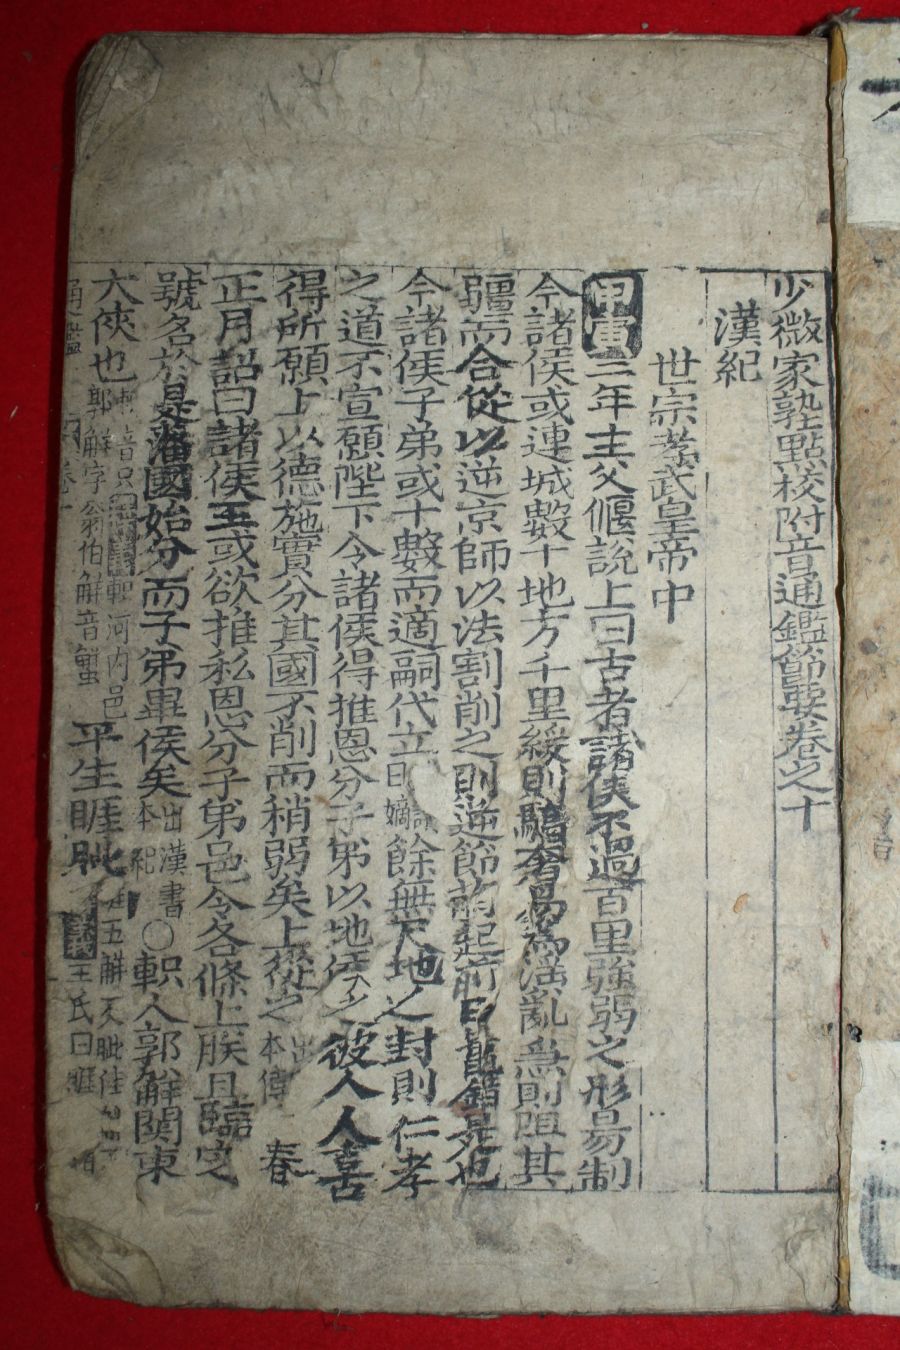 少微家塾點校附音通鑑節要卷之十
漢紀
世宗孝武皇帝中
甲寅二年主父偃說上曰古者諸侯不過百里強弱之形易制
今諸侯或連城數十地方千里緩則驕奢易爲淫亂急則阻其
疆而合從以逆京師以法割削之則逆節萌起前日鼂錯是也
今諸侯子弟或十數而適嗣代立 餘無尺地之封則仁孝
之道不宣願陛下令諸侯得推恩分子弟以地侯之彼人人喜
得所願上以德施實分其國不削而稍弱矣上從之出本傳 春
正月詔曰諸侯王或欲推私恩分子弟邑令各條上朕且臨定
號名於是藩國始分而子弟畢侯矣出漢書本紀〇軹人郭解關東
大俠也 軹音只 軹河內邑郭解字翁伯解音蟹 平生睚眦 五懈天眦仕 王氏曰睚
通鑑 卷十